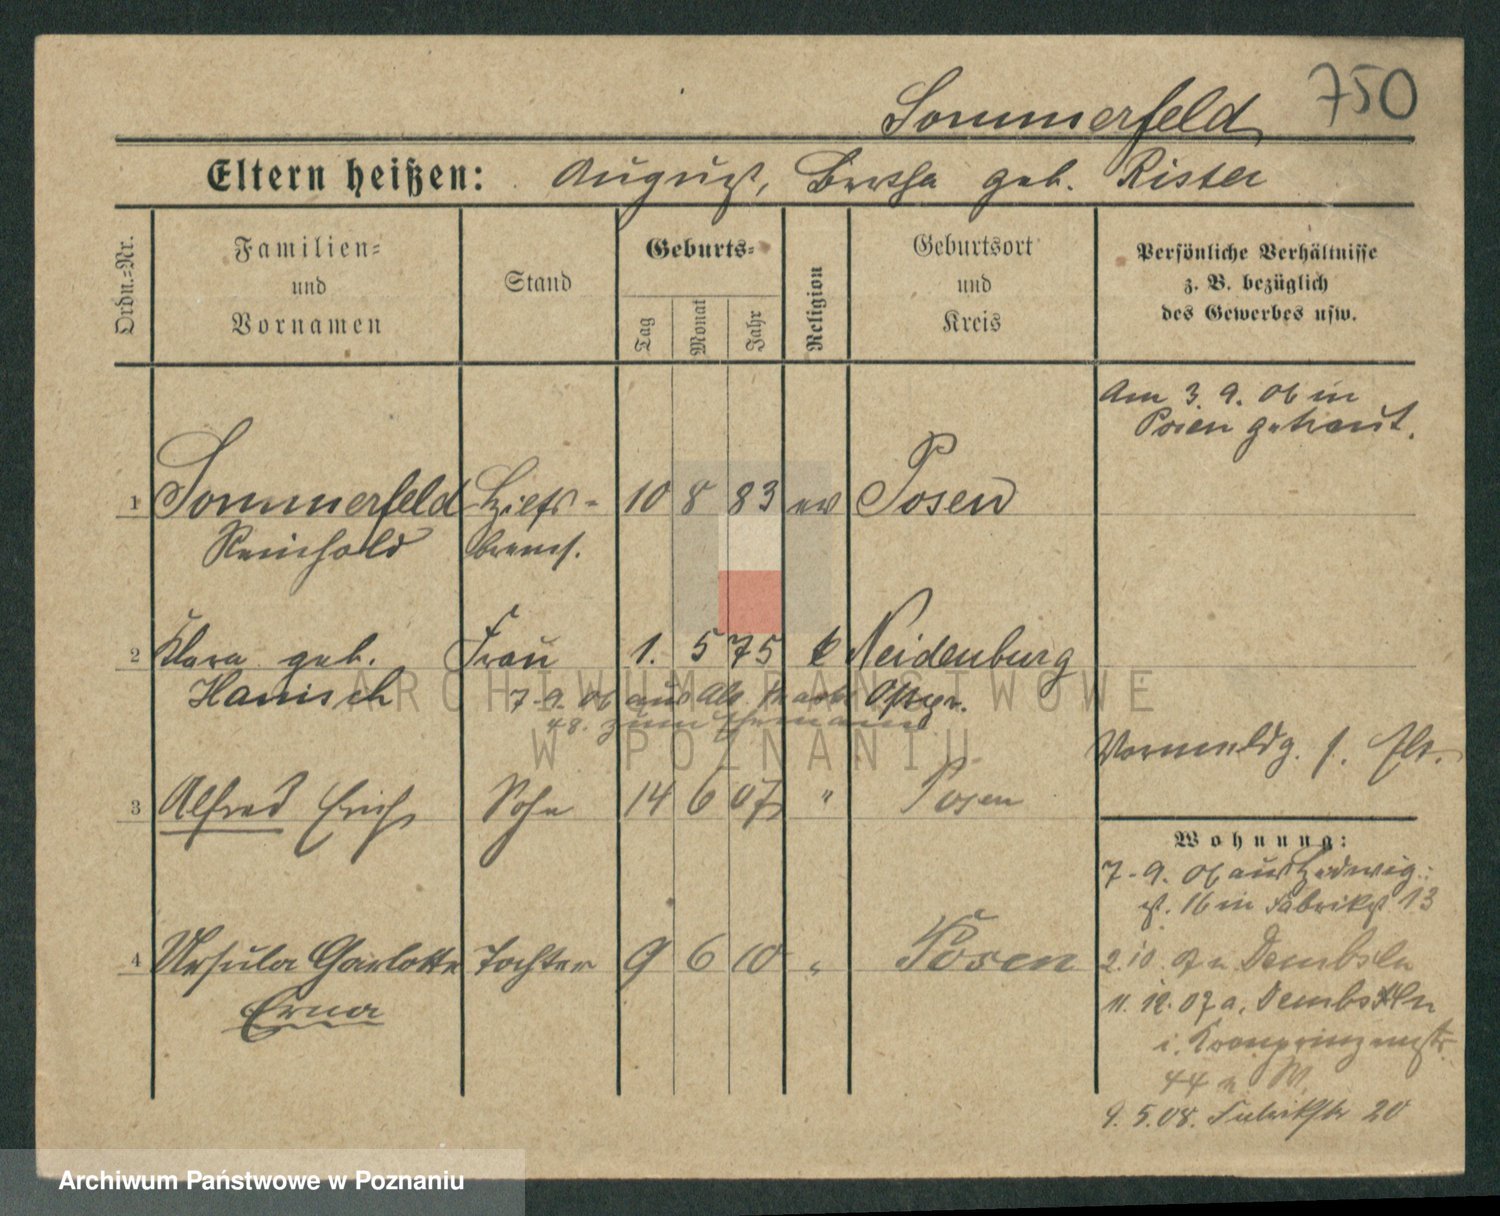 750
Sommerfeld
Eltern heißen: August, Bertha geb. Rister
Ordn.=Nr.
Familien= und Vornamen
Stand
Geburts=
Tag
Monat
Jahr
Religion
Geburtsort und Kreis
Persönliche Verhältnisse
z. B. bezüglich
des Gewerbes usw.
Am 3. 9. 06 in
Posen getraut.
1 Sommerfeld 10 8 83 ev Posen
Reinhold
2 Klara geb. Frau 1. 5 75 Neidenburg
Hanisch 7. 9. 06 aus Ostpr.
48. zum Ehemann
Vormeldg.
3 Alfred Erich Sohn 14 6 07 " Posen
Wohnung:
7. 9. 06 aus Hedwig
st. 16 in Fabrikst 13
4 Ursula Charlotte Tochter 9 6 10 " Posen
Erna
2. 10. Dembsen
11. 12. 07 a. Dembsen
i. Kronprinzenstr.
44
9. 5. 08. Fabrikstr 20
ARCHIWUM PAŃSTWOWE
W POZNANIU
Archiwum Państwowe w Poznaniu